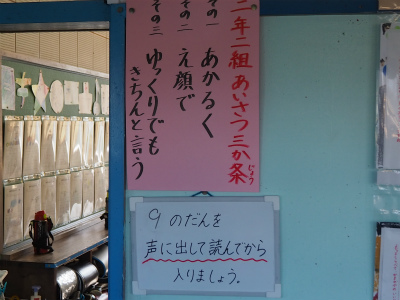 二年二組 あいさつ三か条
じょう
その一 あかるく
その二 え顔で
その三 ゆっくりでも
きちんと言う
9のだんを
声に出して読んでから
入りましょう。